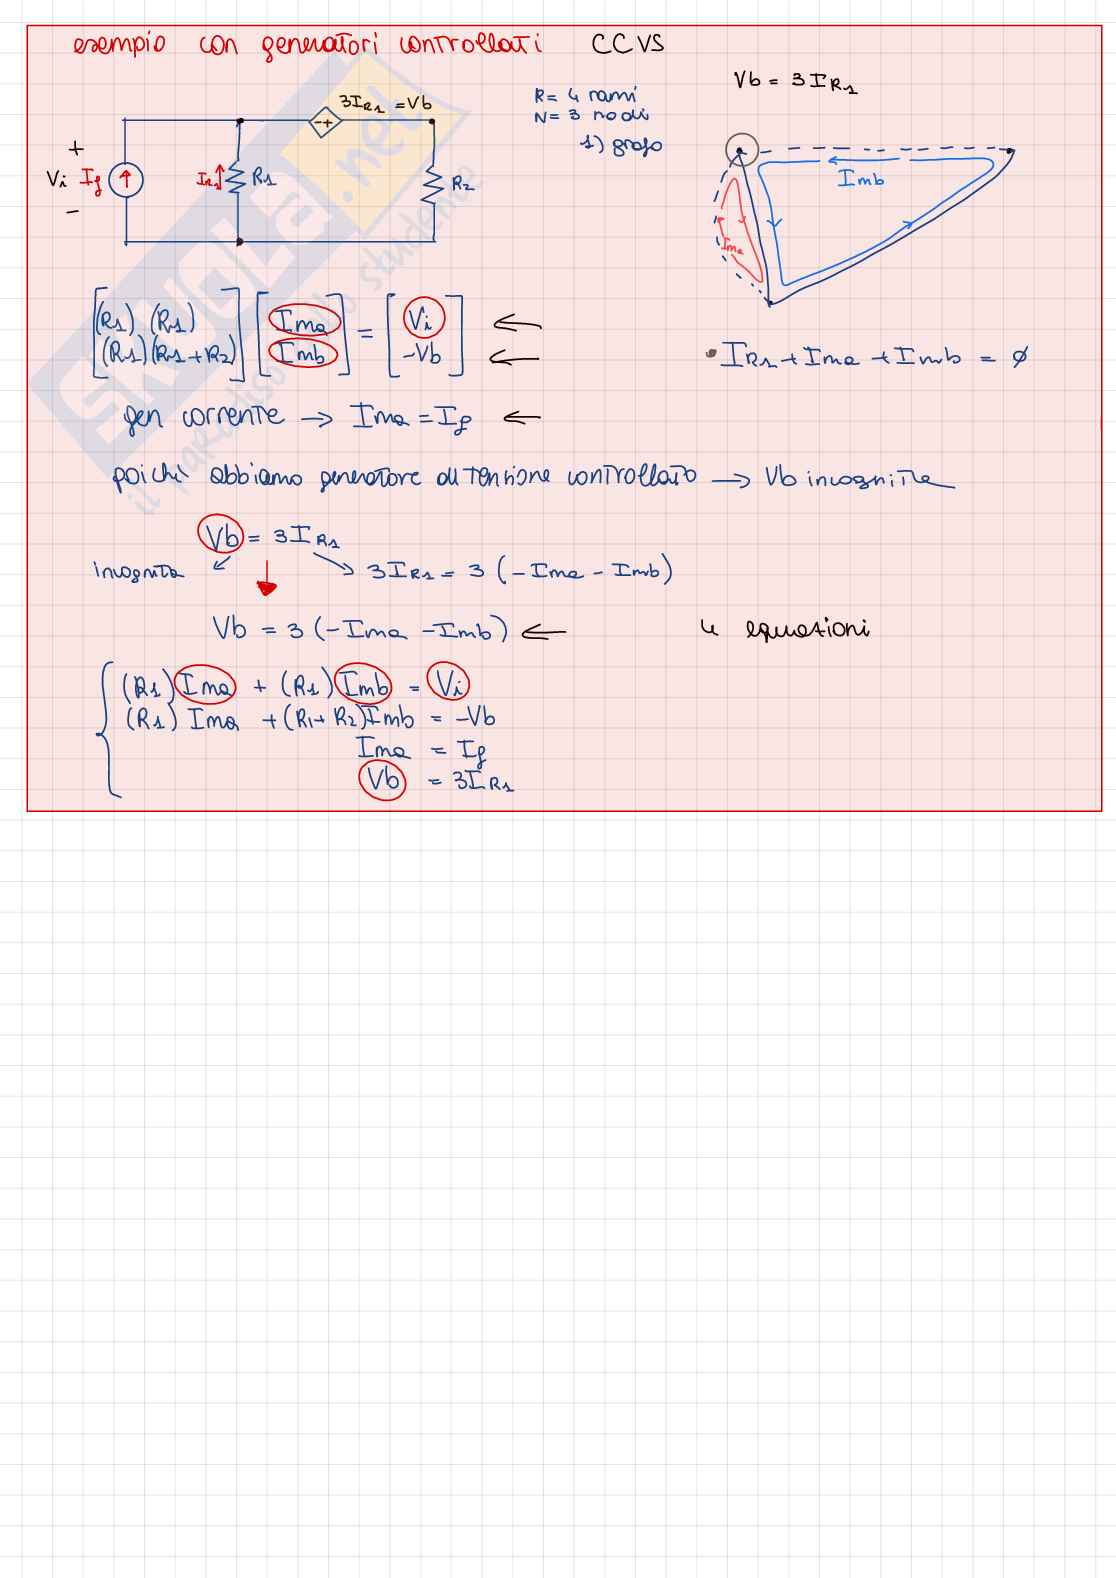 esempio con generatori controllati CCVS
3IR1 = Vb
R = 4 rami
N = 3 nodi
1) grafo
Vb = 3IR1
+
Vi
-
Ig
IR1
R1
-+
R2
Imb
Ima
[(R1) (R1)] [Ima] = [Vi] ←
[(R1) (R1+R2)] [Imb] [-Vb] ←
• IR1 + Ima + Imb = ∅
gen corrente → Ima = Ig ←
poichè abbiamo generatore di tensione controllato → Vb incognita
Vb = 3IR1
incognita
3IR1 = 3 (-Ima - Imb)
Vb = 3 (-Ima - Imb) ←
4 equazioni
(R1) Ima + (R1) Imb = Vi
(R1) Ima + (R1+R2) Imb = -Vb
Ima = Ig
Vb = 3IR1
skuola.net
il paradiso dello studente